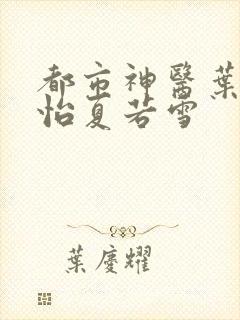 都市神醫葉
怡夏若雪
葉慶耀